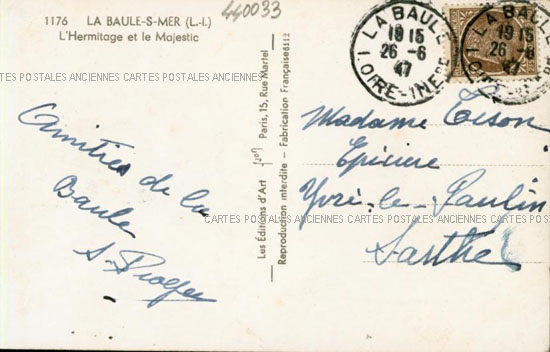 1176 LA BAULE-S-MER (L.-I.)
L'Hermitage et le Majestic
440033
LA BAULE
19 15
26 -6
47
LOIRE-INFRE
LA BAULE
19 15
26 -6
47
CARTES POSTALES ANCIENNES CARTES POSTALES ANCIENNES CARTES POSTALES ANCIENNES CARTES POSTALES ANCIENNES
Amitiés de la
Baule
Les Editions d'Art Paris, 15, Rue Martel
Reproduction interdite - Fabrication Française 6112
Madame Tison
Epicerie
Yvré-le-Paulin
CARTES POSTALES ANCIENNES CARTES POSTALES ANCIENNES CARTES POSTALES ANCIENNES
Sarthe